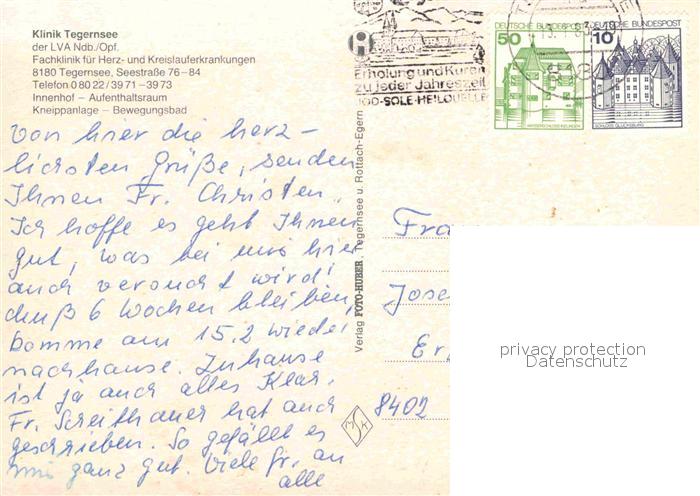 Klinik Tegernsee
der LVA Ndb./Opf.
Fachklinik für Herz- und Kreislauferkrankungen
8180 Tegernsee, Seestraße 76–84
Telefon 0 80 22/39 71–39 73
Innenhof – Aufenthaltsraum
Kneippanlage – Bewegungsbad
Von hier die herz–
lichsten Grüße, senden
Ihnen Fr. Christen.
Ich hoffe es geht Ihnen
gut, was bei uns hier
auch versucht wird!
Muß 6 Wochen bleiben,
komme am 15.2 wieder
nachhause. Zuhause
ist ja auch alles Klar,
Fr. Scheithauer hat auch
geschrieben. So gefällt es
mir ganz gut. Viele Gr. an
alle
Verlag FOTO-HUBER, Tegernsee u. Rottach-Egern
Erholung und Kuren
zu jeder Jahreszeit
JOD-SOLE-HEILQUELLE
DEUTSCHE BUNDESPOST
50
WASSERSCHLOSS INZLINGEN
DEUTSCHE BUNDESPOST
10
SCHLOSS GLÜCKSBURG
Fra
Jose
Er
8402
privacy protection
Datenschutz